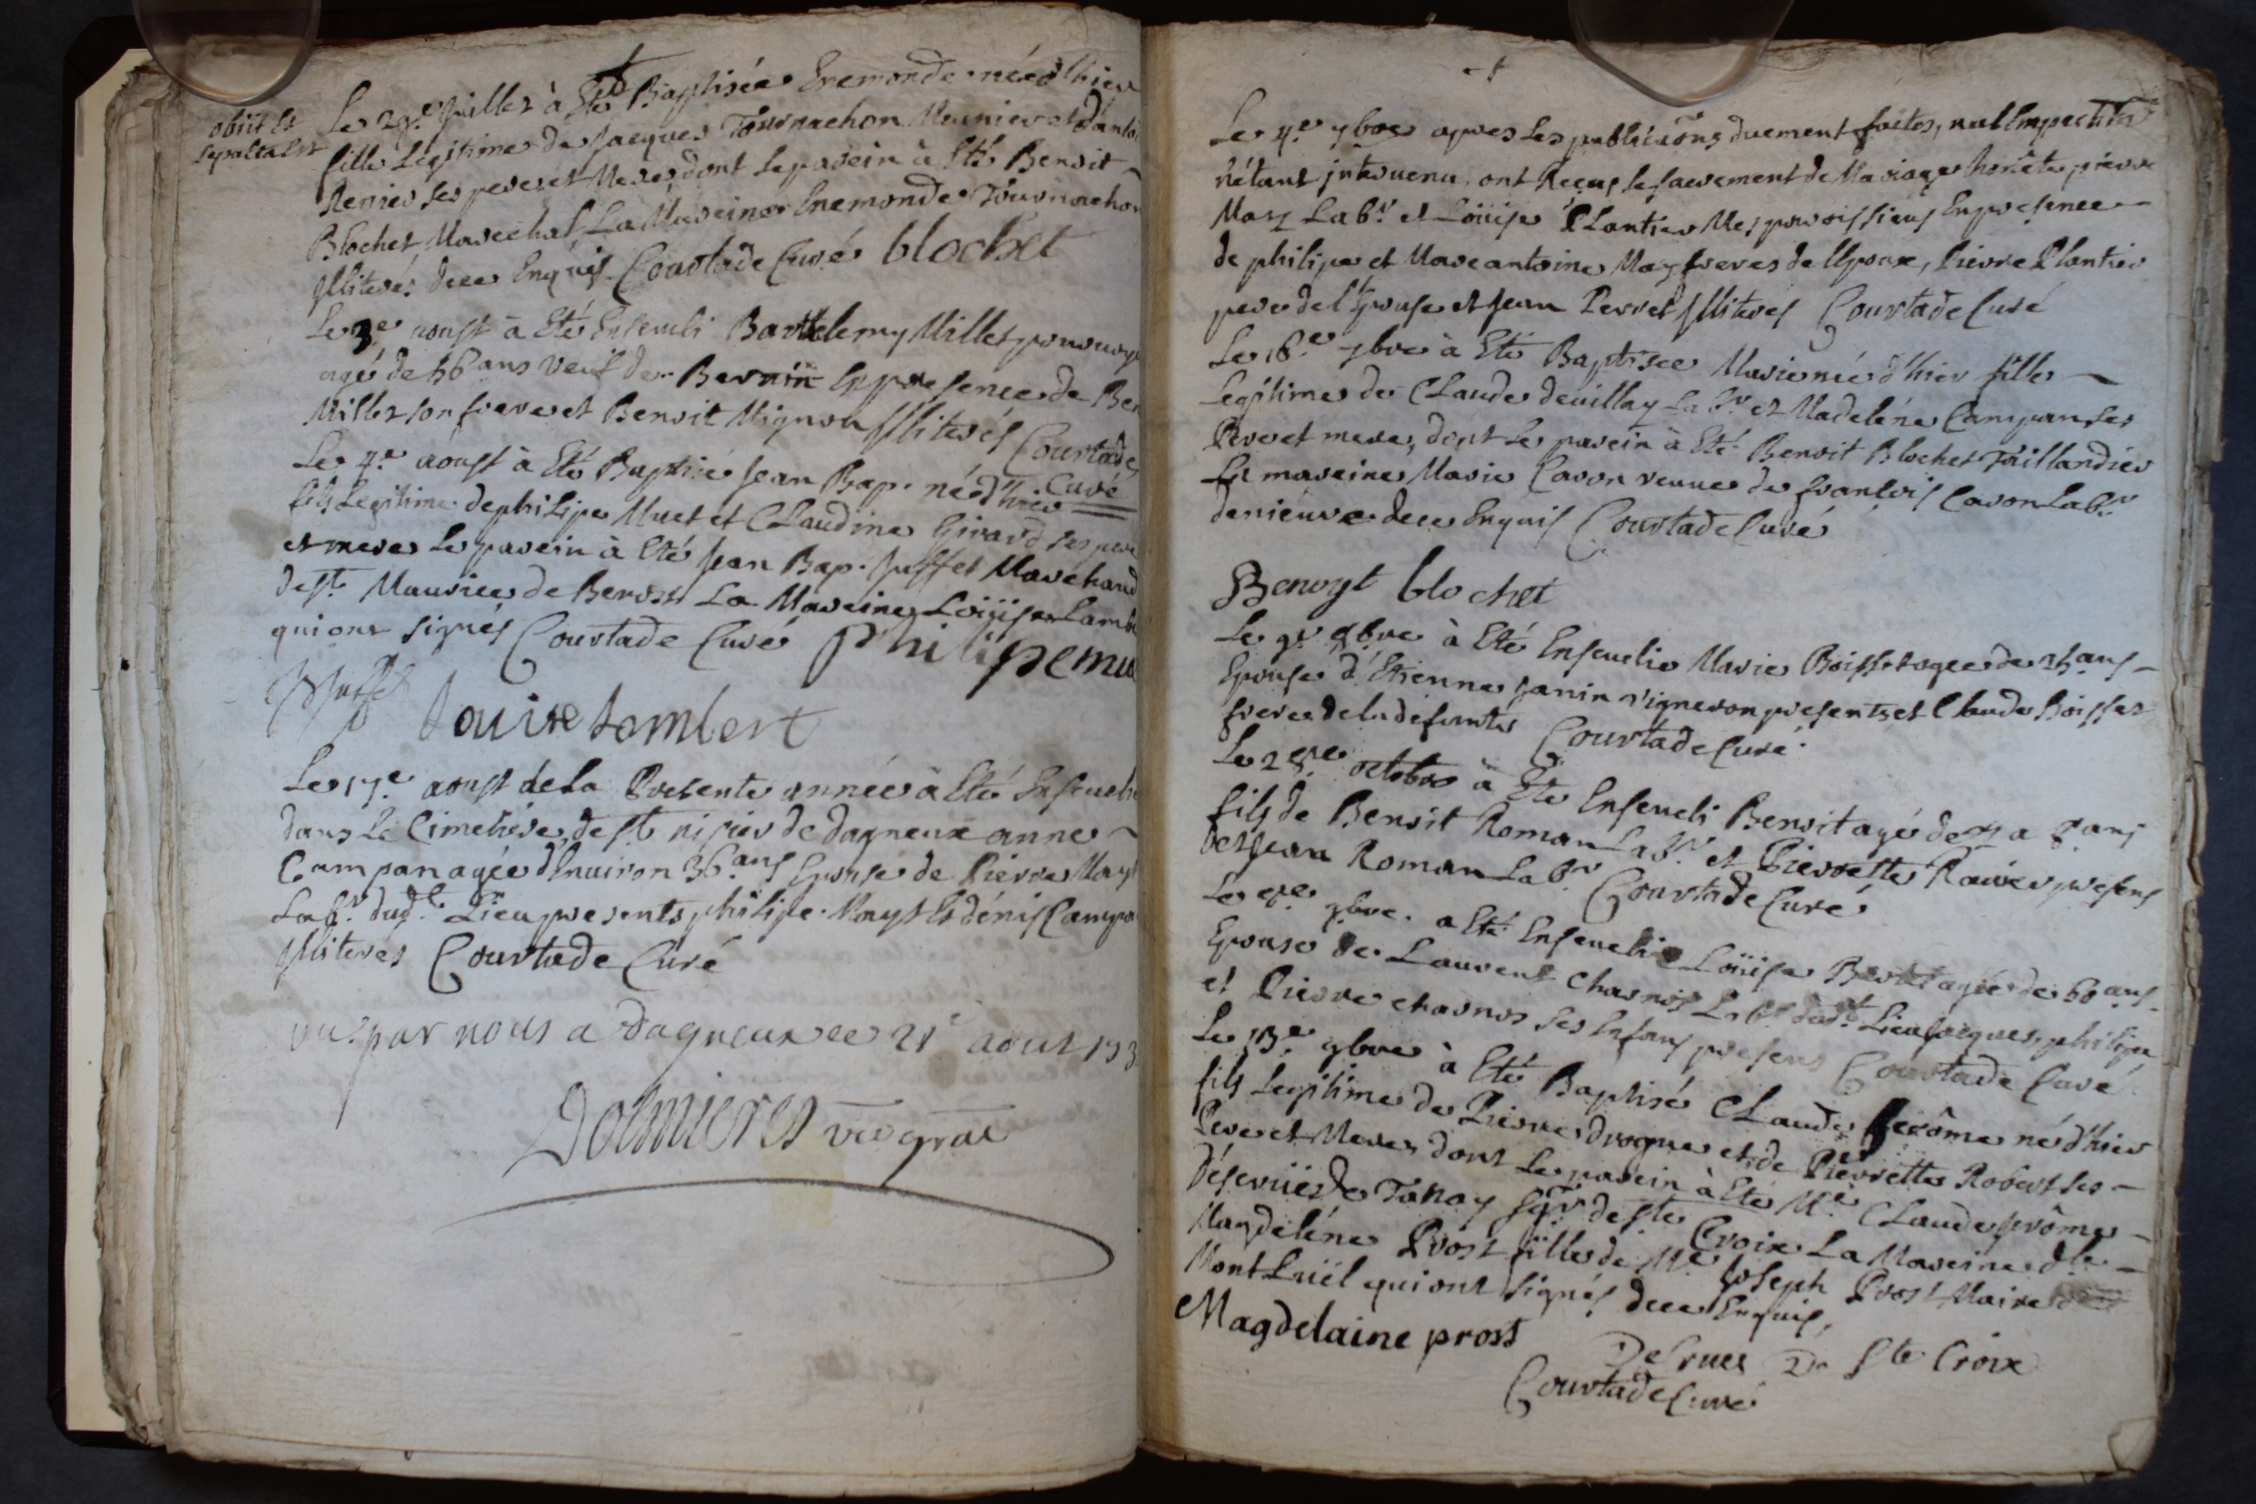 obiit et
sepulta est
Le 29.e Juillet à Eté Baptisée Enemonde née d'hier
fille Legitime de Jacques Tournachon Meunier et d'anto
Renier ses peres et Meres, dont Le parein à Eté Benoit
Blochet Marechal, La Mareine Enemonde Tournachon
Illiterés dece Enquis Courtade Curé blochet
Le 3.e aoust à Eté Enseveli Barthelemy Millet
agé de 56 ans veuf de Bernin En presence de Ben
Millet son frere et Benoit Mignon Illiterés Courtade
Curé
Le 4.e aoust à Eté Baptisé Jean Bap. né d'hier
fils Legitime de philipe Muet et Claudine Girard ses pere
et mere Le parein à Eté Jean Bap. Juffet Marchand
de st. Maurice de Benost La Mareine Loüise Lamb
qui ont signés Courtade Curé philipemu
Juffet
Louise Lombert
Le 17.e aoust de La Presente année à Eté Enseveli
dans Le Cimetiere de st. nisier de dagneux anne
Campan agée d'Environ 36 ans Epouse de Pierre May
Lab.r dud.t Lieu presents philipe Mayt Et dénis Campa
Illiteres Courtade Curé
vu par nous a dagneux ce 21e aout 173
Dolmieres vic gnal
Le 4.e 7bre apres Les publications duement faites, nul Empechem
n'étant intervenu, ont Reçus le sacrement de Mariage honête pierre
May Lab.r et Loüise Plantier Mes paroissiens En presence
de philipe et Marc antoine May freres de l'Epoux, Pierre Plantier
pere de l'Epouse et Jean Perret Illiteres Courtade Curé
Le 16.e 7bre à Eté Baptisee Marie née d'hier fille
Legitime de Claude devillay Lab.r et Madeléne Campan ses
Pere et mere, dont Le parein à Eté Benoit Blochet Taillandier
Et mareine Marie Cavon veuve de françois Cavon Lab.r
de nieure dece Enquis Courtade Curé
Benoyt blochet
Le 9.e 8bre à Eté Ensevelie Marie Boisset agée de 25 ans
Epouse d'Etienne Janin vigneron present et Claude Boisset
frere de la defunte Courtade Curé
Le 2 octobre à Eté Enseveli Benoit agé de 7 a 8 ans
fils de Benoit Roman Lab.r et Pierrette Ravier presens
Et Jean Roman Lab.r Courtade Curé
Le 9bre. a Eté Ensevelie Loüise agée de 60 ans
Epouse de Laurent Charnos Lab.r dud.t Lieu Jacques, philipe
et Pierre charnos ses Enfans presens Courtade Curé
Le 13.e 9bre à Eté Baptisé Claude Jerôme né d'hier
fils Legitime de Pierre drogue et de Pierrette Robert ses
Pere et Mere, dont Le parein à Eté M.r Claude Jerôme
Déscrües De Tanay sgr de ste Croix La Mareine dlle
Magdeléne Prost fille de M.e Joseph Prost Maire
Montluël qui ont signés dece Enquis,
Magdelaine prost
DeCrues De Ste Croix
Courtade Curé